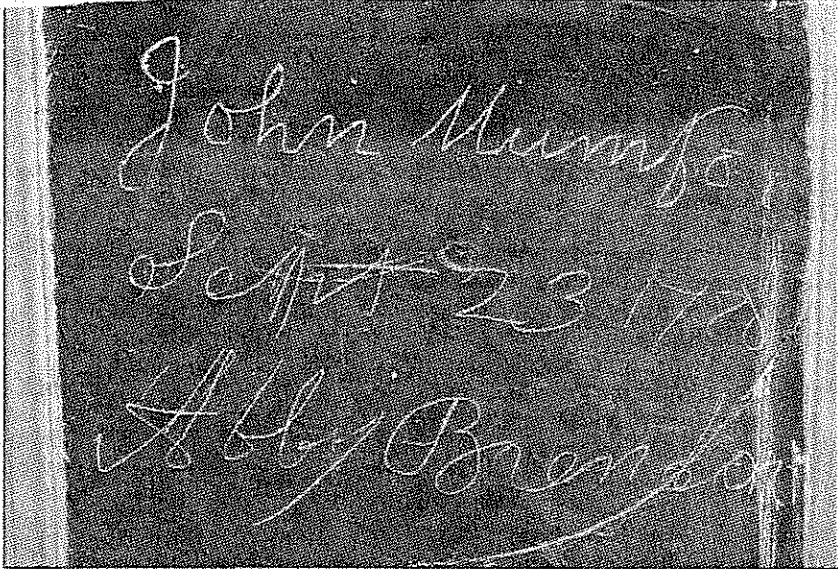 John Mumfo
Sept 23
Abby Brendon